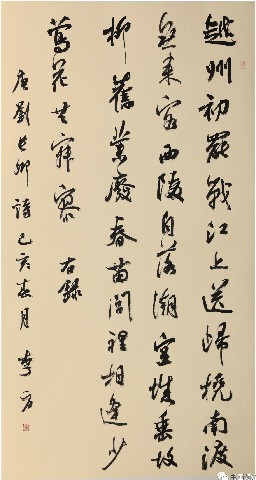 越州初罷戰江上送歸橈南渡
無來客西陵自落潮空城垂故
柳舊業廢春苗閭裡相逢少
鶯花共寂寥 右錄
唐劉長卿詩己亥春月 李方